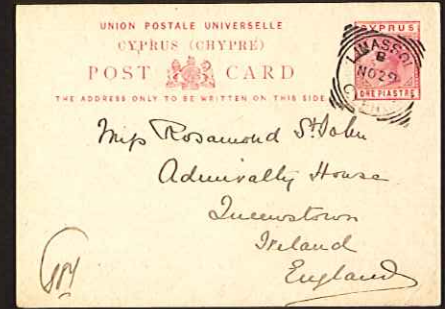 UNION POSTALE UNIVERSELLE
CYPRUS (CHYPRE)
POST CARD
THE ADDRESS ONLY TO BE WRITTEN ON THIS SIDE
CYPRUS
ONE PIASTRE
LIMASSOL
B
NO 29
Miss Rosamond St. John
Admiralty House
Queenstown
Ireland
England